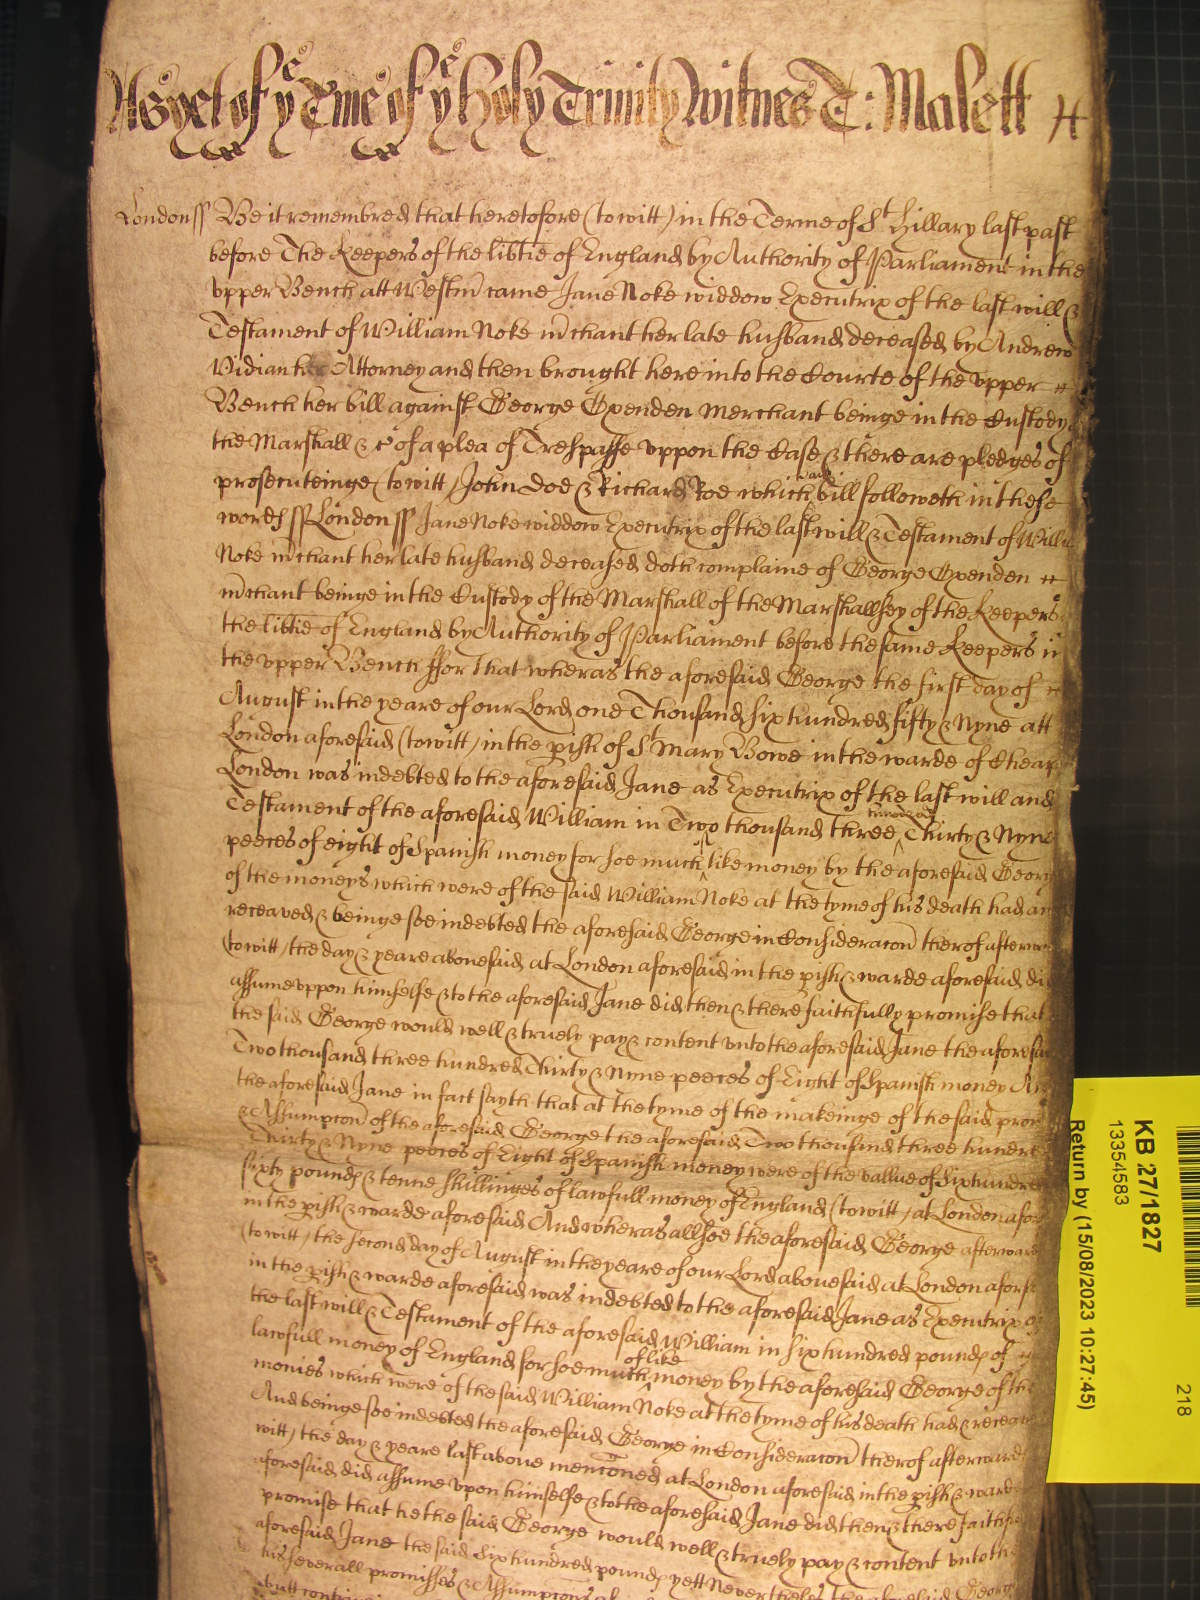 As yet of ye Tme of ye Holy Trinity Witnes T: Malett
London ss Be it remembred that heretofore (to witt) in the Terme of St Hillary last past
before The Keepers of the libtie of England by Authority of Parliament in the
vpper Bench att Westm came Jane Noke widdow Executrix of the last will &
Testament of William Noke mchant her late husband deceased by Andrew
Vidian her Attorney and then brought here into the Courte of the vpper
Bench her bill against George Oxenden Merchant beinge in the Custody
the Marshall &c of a plea of Trespasse vppon the Case & there are pledges of
prosecuteinge (to witt) John Doe & Richard Roe which said bill followeth in these
words ss London ss Jane Noke widdow Executrix of the last will & Testament of Willia
Noke mchant her late husband deceased doth complaine of George Oxenden
mchant beinge in the Custody of the Marshall of the Marshallsey of the Keepers
the libtie of England by Authority of Parliament before the same Keepers in
the vpper Bench ffor that wheras the aforesaid George the first day of
August in the yeare of our Lord one Thousand six hundred fifty & Nyne att
London aforesaid (to witt) in the pish of St Mary Bowe in the warde of Cheap
London was indebted to the aforesaid Jane as Executrix of the last will and
Testament of the aforesaid William in Two thousand three hundred Thirty & Nyne
peeces of eight of Spanish money for soe much like money by the aforesaid Georg
of the moneys which were of the said William Noke at the tyme of his death had an
receaved & beinge soe indebted the aforesaid George in Consideracon therof afterwa
(to witt) the day & yeare abovesaid at London aforesaid in the pish & warde aforesaid di
assume vppon himselfe & to the aforesaid Jane did then & there faithfully promise that
the said George would well & truely pay & content vnto the aforesaid Jane the aforesai
Two thousand three hundred Thirty & Nyne peeces of Eight of Spanish money An
the aforesaid Jane in fact sayth that at the tyme of the makeinge of the said prom
& Assumpcon of the aforesaid George the aforesaid Two thousand three hundre
Thirty & Nyne peeces of Eight of Spanish money were of the vallue of Six hundre
sixty pounds & tenne shillinges of lawfull money of England (to witt) at London afor
in the pish & warde aforesaid And wheras allsoe the aforesaid George afterward
(to witt) the second day of August in the yeare of our Lord abovesaid at London aforesa
in the pish & warde aforesaid was indebted to the aforesaid Jane as Executrix of
the last will & Testament of the aforesaid William in six hundred pounds of
lawfull money of England for soe much of like money by the aforesaid George of the
monies which were of the said William Noke at the tyme of his death had & receave
And beinge soe indebted the aforesaid George in Consideracon therof afterwards
witt) the day & yeare last above menconed at London aforesaid in the pish & warde
aforesaid did assume vpon himselfe & to the aforesaid Jane did then & there faithfu
promise that he the said George would well & truely pay & content vnto the
aforesaid Jane the said Six hundred pounds yett Neverthelesse the aforesaid George
his severall promisses & Assumpcons
butt
KB 27/1827
13354583
Return by (15/08/2023 10:27:45)
218